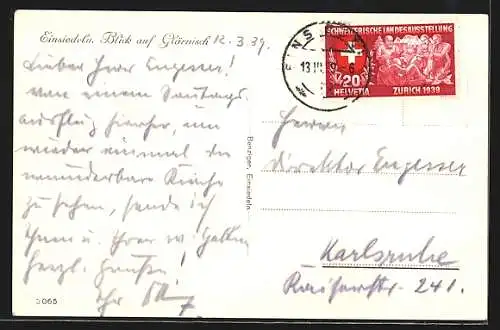 Einsiedeln. Blick auf Glärnisch 12.3.39.
Lieber Herr Engesser!
Von einem Sonntags
ausflug hierher, um
wieder einmal die
wunderbare Kirche
zu sehen, sende ich
Ihnen u. Ihrer w. Gattin
herzl. Grüsse!
Ihr
3066
Benziger, Einsiedeln
EINS
13.III.39-6
SCHWEIZERISCHE LANDESAUSSTELLUNG
20
HELVETIA ZÜRICH 1939
Herrn
Direktor Engesser
Karlsruhe
Kaiserstr. 241.